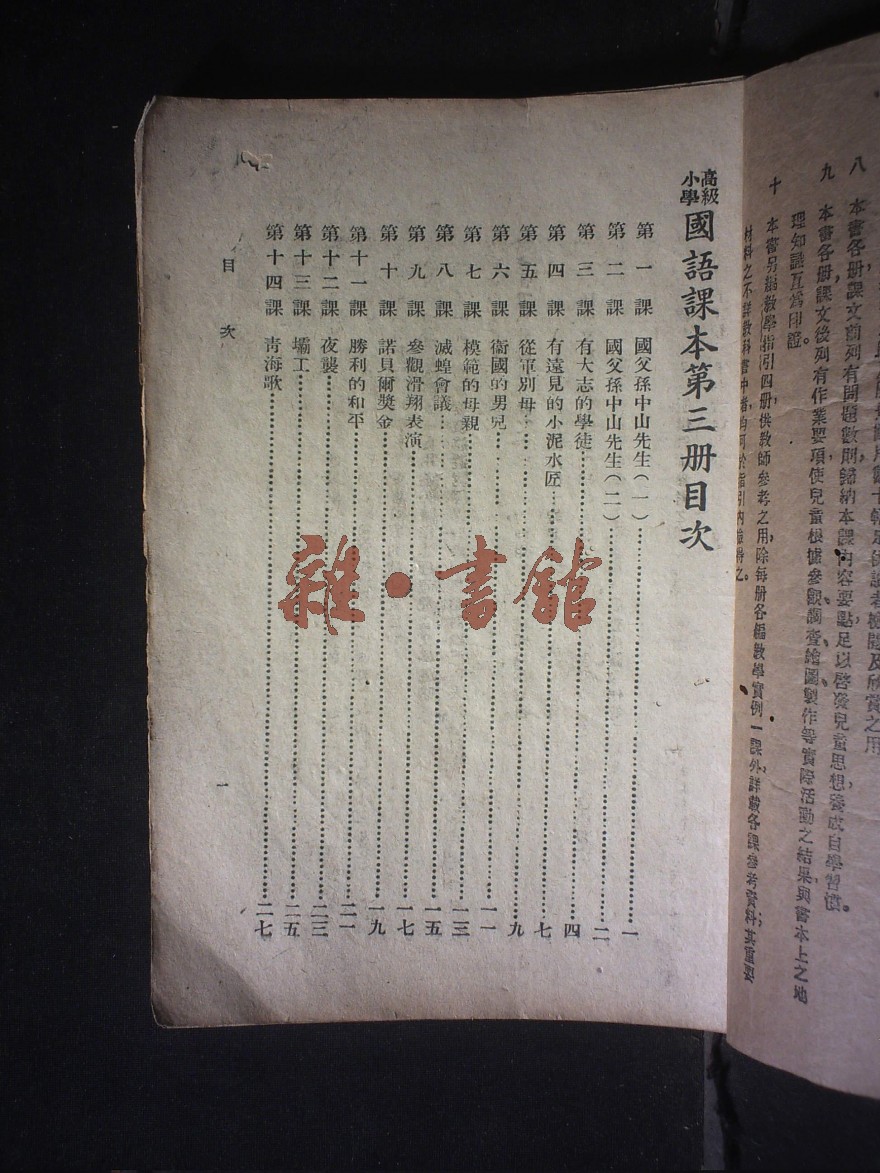 八 本書各册課文前列有問題數則歸納本課內容要點足以啓發兒童思想養成自學習慣。
九 本書各册課文後列有作業要項使兒童根據參觀調查繪圖製作等實際活動之結果與書本上之地
理知識互爲印證。
十 本書另編教學指引四册供教師參考之用,除每册各編教學實例一課外,詳載各課參考資料;其重要
材料之不詳教科書中者,均可於指引內檢得之。
高級小學國語課本第三册目次
第一課 國父孫中山先生(一) 一
第二課 國父孫中山先生(二) 二
第三課 有大志的學徒 四
第四課 有遠見的小泥水匠 七
第五課 從軍別母 九
第六課 衞國的男兒 一一
第七課 模範的母親 一三
第八課 滅蝗會議 一五
第九課 參觀滑翔表演 一七
第十課 諾貝爾獎金 一九
第十一課 勝利的和平 二一
第十二課 夜襲 二三
第十三課 壩工 二五
第十四課 靑海歌 二七
目次
一
雜·書館